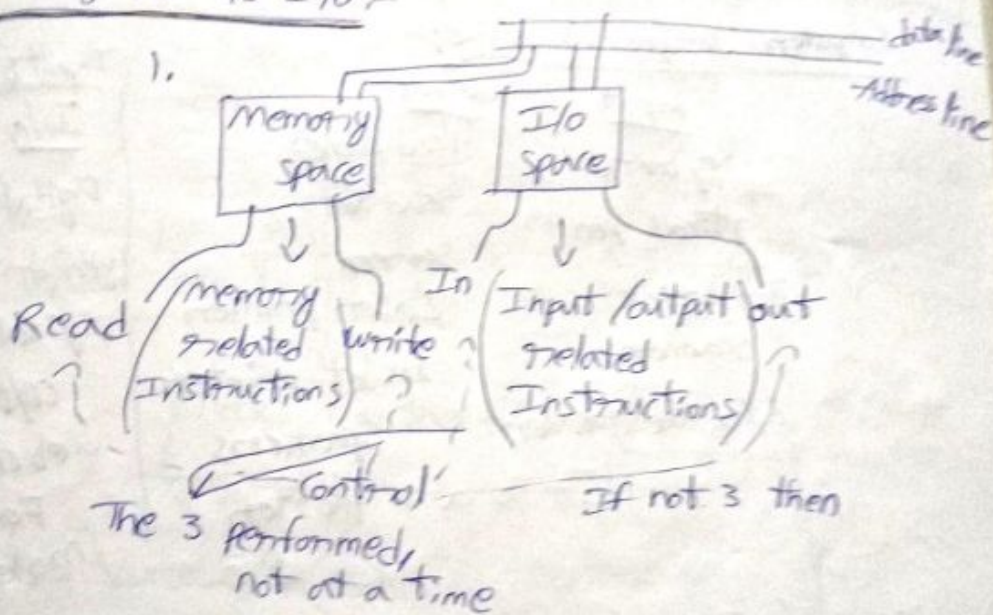 1.
data line
Address line
Memory
space
I/o
space
Read
?
(memory
related
Instructions)
write
?
In
?
(Input/output
related
Instructions)
out
?
Control
The 3 performed,
not at a time
If not 3 then